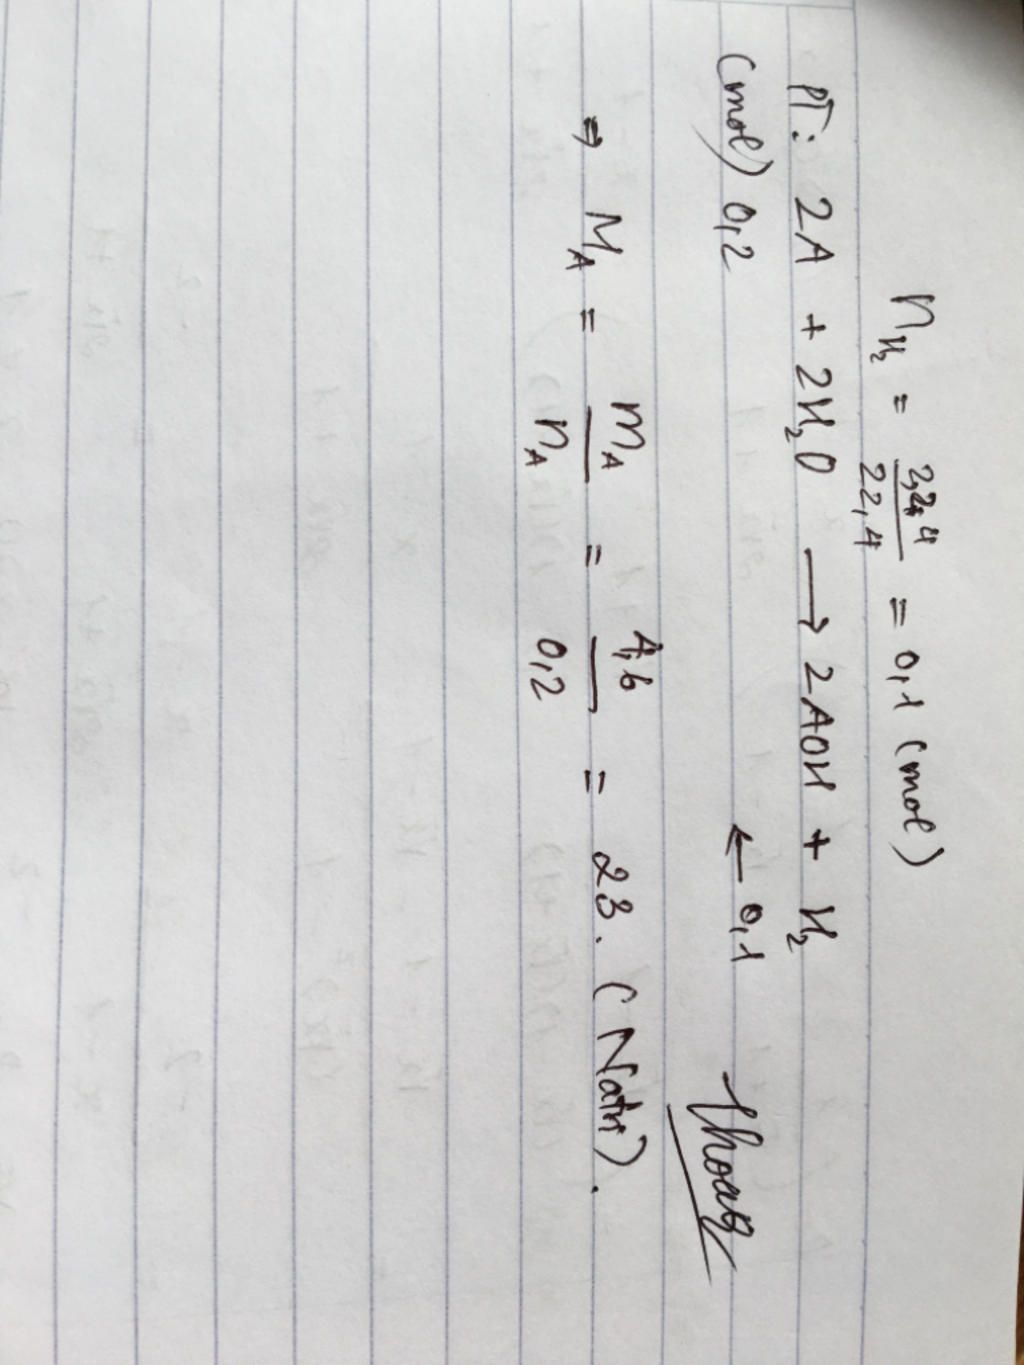 n_H₂ = 2,24/22,4 = 0,1 (mol)
PT: 2A + 2H₂O → 2AOH + H₂
(mol) 0,2 ← 0,1
⇒ M_A = m_A/n_A = 4,6/0,2 = 23. (Natri).